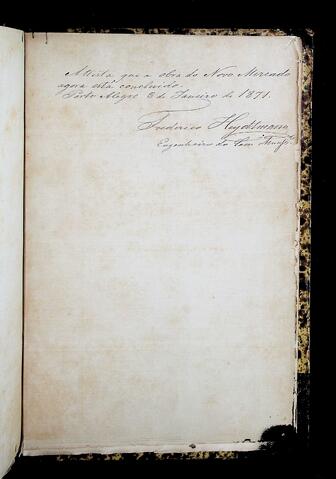 Attesta que a obra do Novo Mercado
agora está concluido.
Porto Alegre 3 de Janeiro de 1871.
Frederico Heydtmann
Engenheiro da Cam Municipal